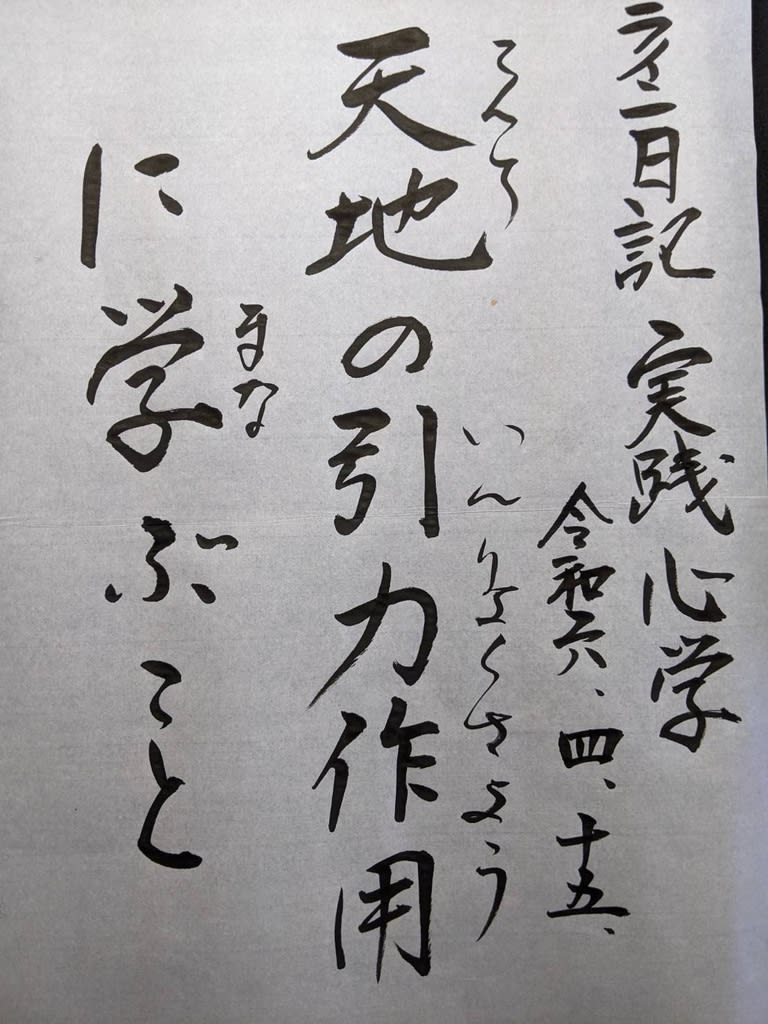 日記 実践心学
令和六、四、十五、
いんりょくさよう
天地の引力作用
まな
に学ぶこと